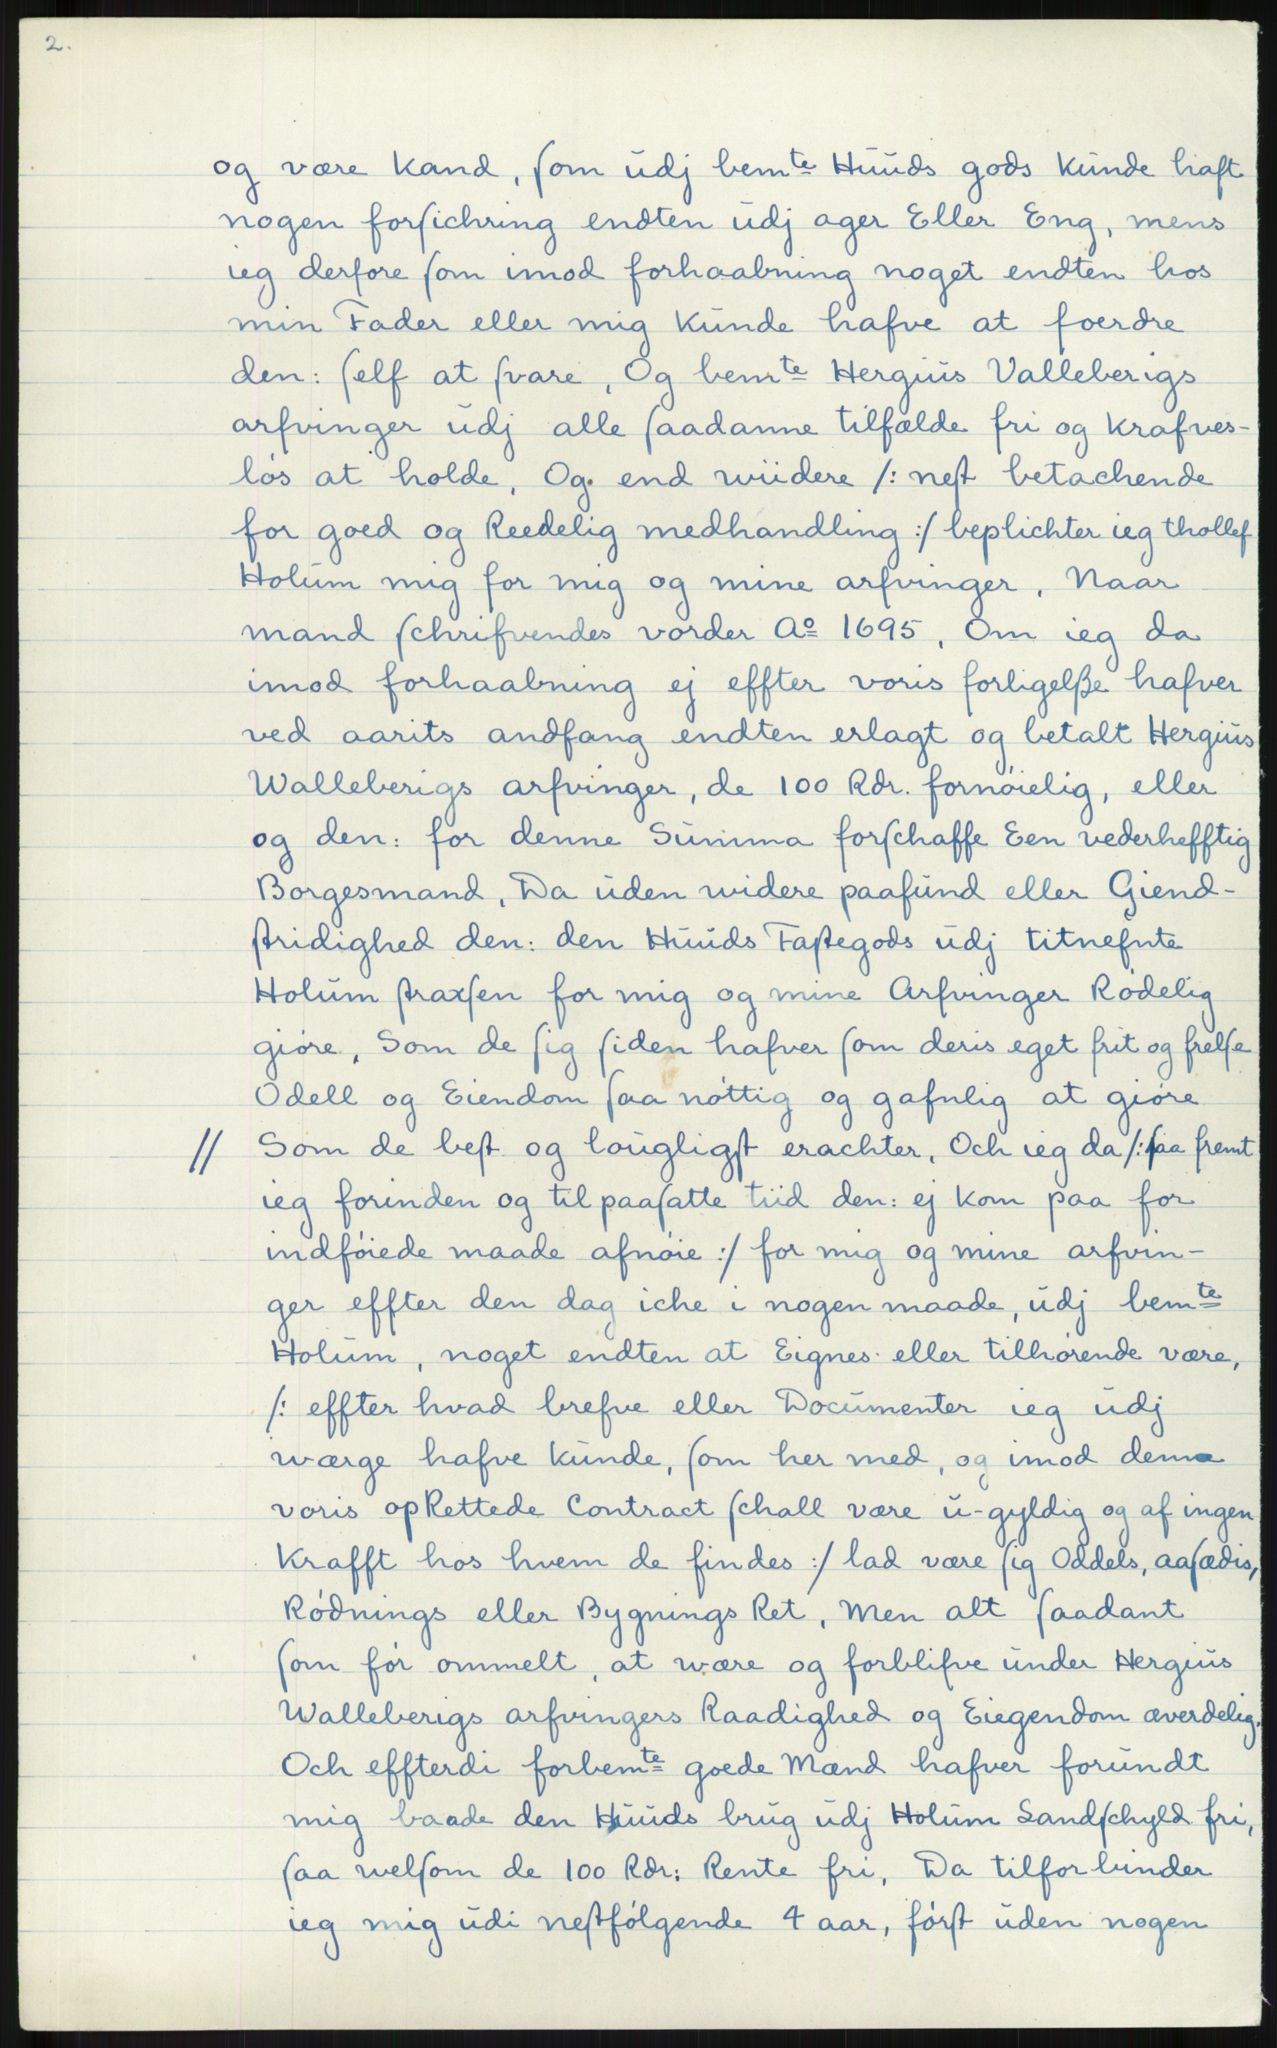 2.
og være kand, som udj bemte Huuds gods kunde haft
nogen forsichring endten udj ager Eller Eng, mens
ieg derfore som imod forhaabning noget endten hos
min Fader eller mig kunde hafve at foerdre
den: self at svare, Og bemte Hergius Valleberigs
arfvinger udj alle saadanne tilfælde fri og krafves-
løs at holde, Og end wiidere /: nest betachende
for goed og Reedelig medhandling :/ beplichter ieg thollef
Holum mig for mig og mine arfvinger, Naar
mand schrifvendes vorder Ao 1695, Om ieg da
imod forhaabning ej effter voris forligelße hafver
ved aarits andfang endten erlagt og betalt Hergius
Walleberigs arfvinger, de 100 Rdr. fornøielig, eller
og den: for denne Summa forschaffe Een vederhefftig
Borgesmand, Da uden widere paafund eller Giend-
stridighed den: den Huuds Fastegods udj titnefnte
Holum straxsen for mig og mine Arfvinger Rødelig
giøre, Som de sig siden hafver som deris eget frit og frelse
Odell og Eiendom saa nøttig og gafnlig at giøre
// Som de best og lougligst erachter, Och ieg da /: saa fremt
ieg forinden og til paasatte tiid den: ej kom paa for
indføiede maade afnøie :/ for mig og mine arfvin-
ger effter den dag iche i nogen maade, udj bemte
Holum, noget endten at Eignes eller tilhørende være,
/: effter hvad brefve eller Documenter ieg udj
wærge hafve kunde, som her med, og imod denne
voris opRettede Contract schall være u-gyldig og af ingen
Krafft hos hvem de findes :/ lad være sig Oddels, aasædis,
Rødnings eller Bygnings Ret, Men alt saadant
som før ommelt, at være og forblifve under Hergius
Walleberigs arfvingers Raadighed og Eiegendom æverdelig.
Och effterdi forbemte goede Mænd hafver forundt
mig baade den Huuds brug udj Holum Landschyld fri,
saa welsom de 100 Rdr: Rente fri, Da tilforbinder
ieg mig udi nestfølgende 4 aar, først uden nogen